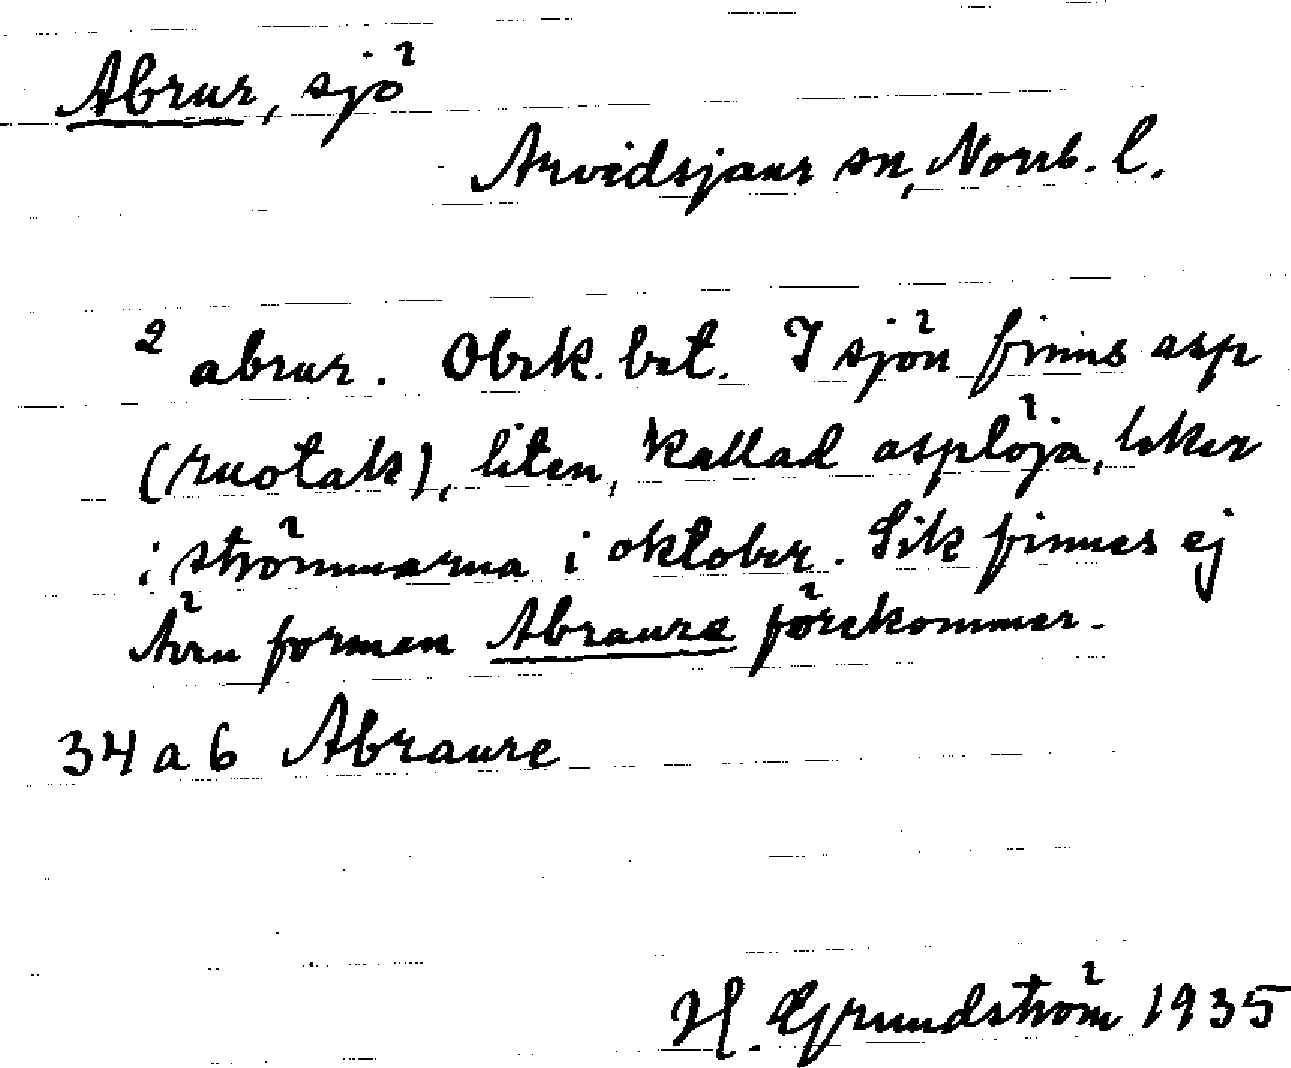 Abrur, sjö
Arvidsjaur sn, Norrb. l.
2 abrur. Obek. bet. I sjön finns asp
(ruotak), liten, kallad asplöja, leker
i strömmarna i oktober. Sik finnes ej
Även formen Abraure förekommer.
34 a 6 Abraure
H. Grundström 1935